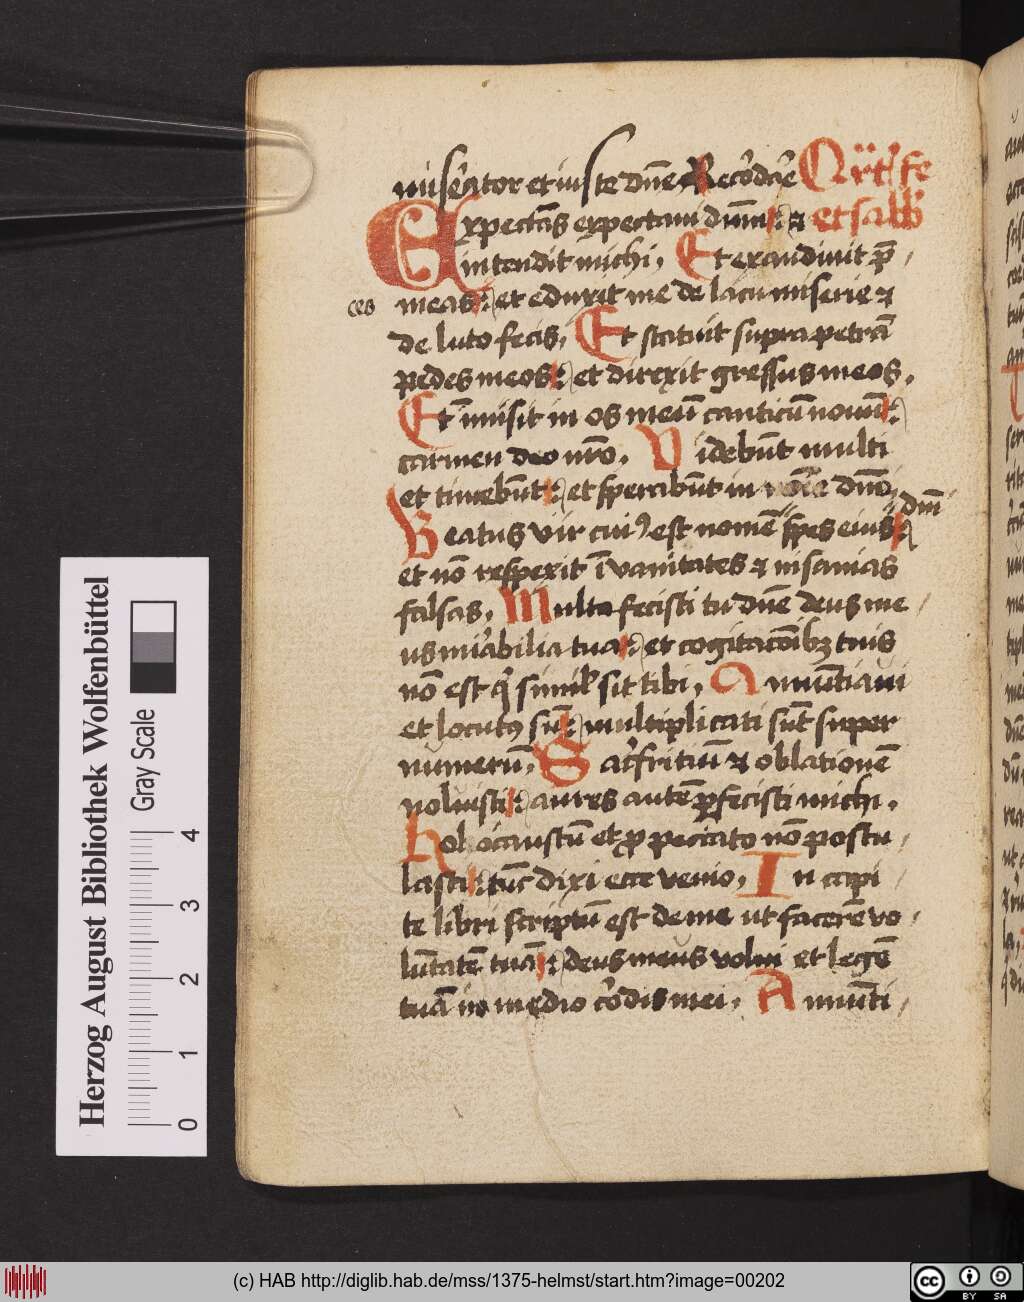 miserator et iuste dn̄e Recordare Qrt' fe
Expectās expectaui dnm̄ : ⁊ et sabb'
intendit michi. Et exaudiuit p̄
ces meas : et eduxit me de lacu miserie ⁊
de luto fecis. Et statuit supra petrā
pedes meos : et direxit gressus meos.
Et īmisit in os meū canticū nouū :
carmen deo nr̄o. Videbūt multi
et timebūt : et sperabūt in dn̄o
dnī
Beatus vir cui⁹ est nomē spes eius :
et nō respexit ī vanitates ⁊ insanias
falsas. Multa fecisti tu dn̄e deus me
us mi'abilia tua : et cogitacōibꝫ tuis
nō est q' simil' sit tibi. Annūtiaui
et locut⁹ sū : multiplicati sūt super
numerū. Sac'ficiū ⁊ oblationē
noluisti : aures autē ꝑfecisti michi.
Holocaustū et ꝓ peccato nō postu
lasti : tūc dixi ecce venio. In capi
te libri scriptū est de me ut facerē vo
lūtatē tuā : deus meus volui et legē
tuā in medio cordis mei. Annūti
Herzog August Bibliothek Wolfenbüttel
Gray Scale
0 1 2 3 4
(c) HAB http://diglib.hab.de/mss/1375-helmst/start.htm?image=00202
cc BY SA